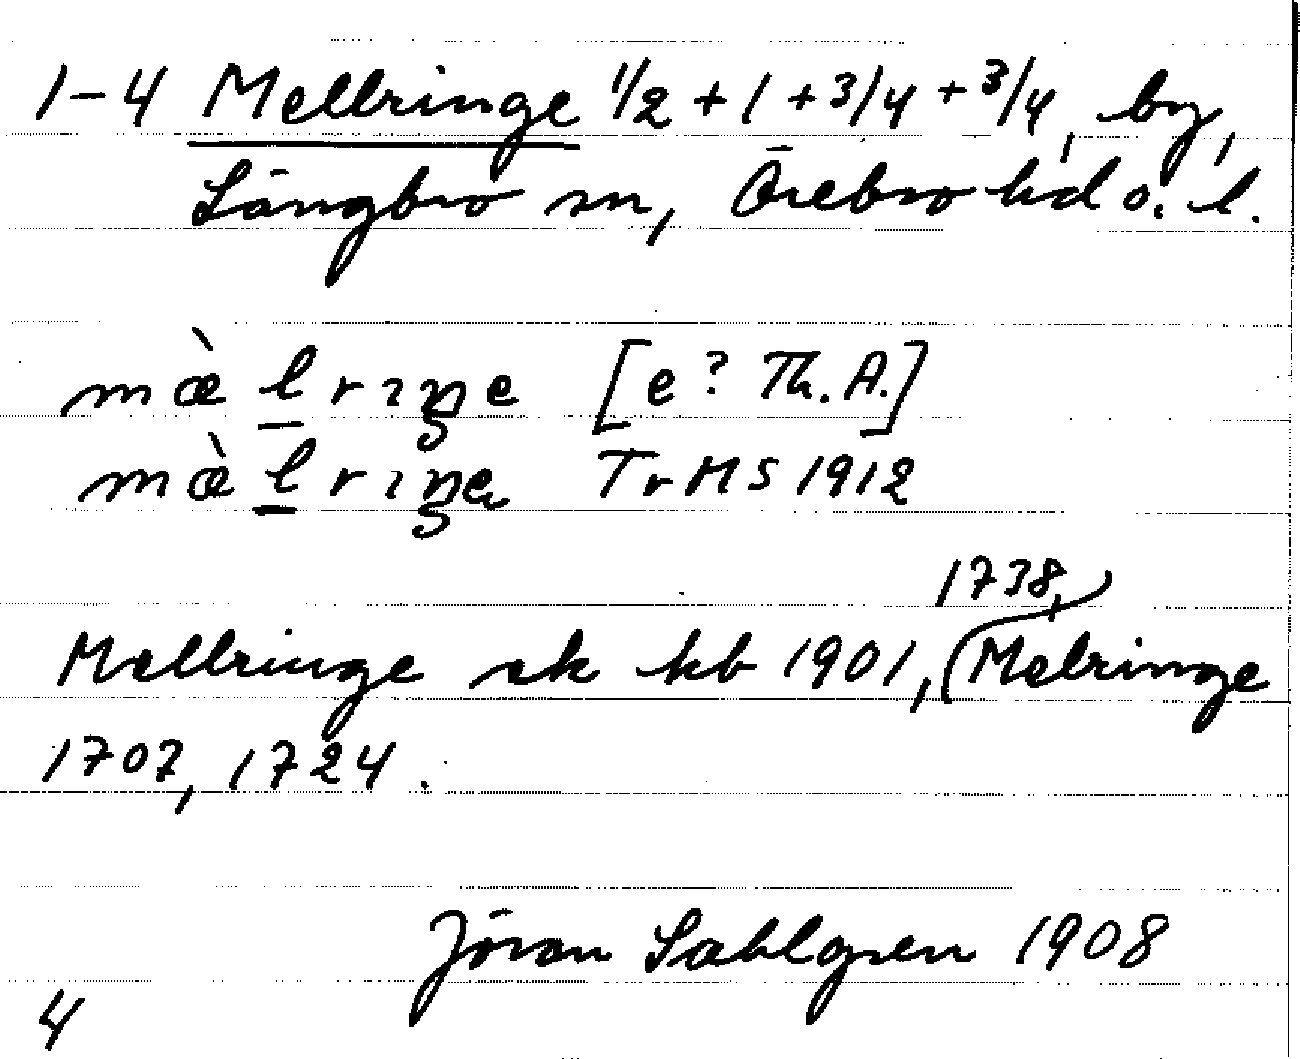 1-4 Mellringe 1/2 + 1 + 3/4 + 3/4, by,
Längbro sn, Örebro hd o. l.
mæ̀ l̲ r ı ŋ e [e? Th. A.]
mæ̀ l̲ r ı ŋ a TrMS 1912
1738,
Mellringe sk kb 1901, Melringe
1707, 1724.
Jöran Sahlgren 1908
4